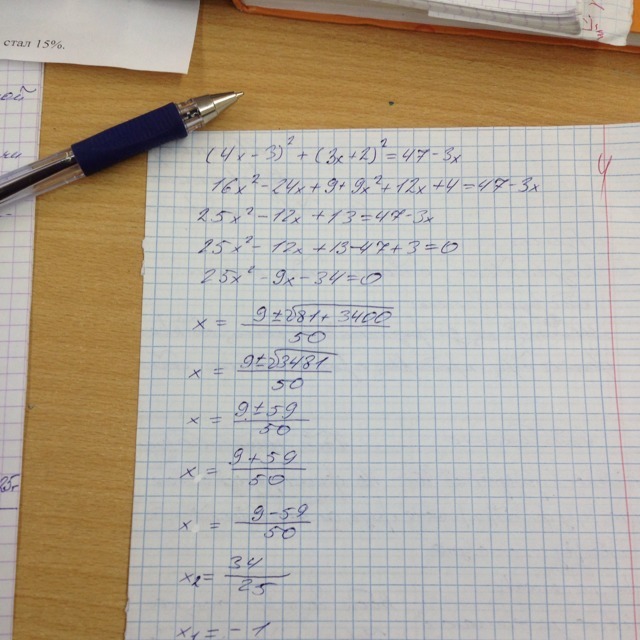 стал 15%.
ой
(4x-3)² + (3x+2)² = 47-3x
16x² - 24x + 9 + 9x² + 12x + 4 = 47-3x
25x² - 12x + 13 = 47-3x
25x² - 12x + 13-47 + 3 = 0
25x² - 9x - 34 = 0
x = (9 ± √(81 + 3400)) / 50
x = (9 ± √3481) / 50
x = (9 ± 59) / 50
x = (9 + 59) / 50
x = (9 - 59) / 50
x₂ = 34 / 25
x₁ = -1